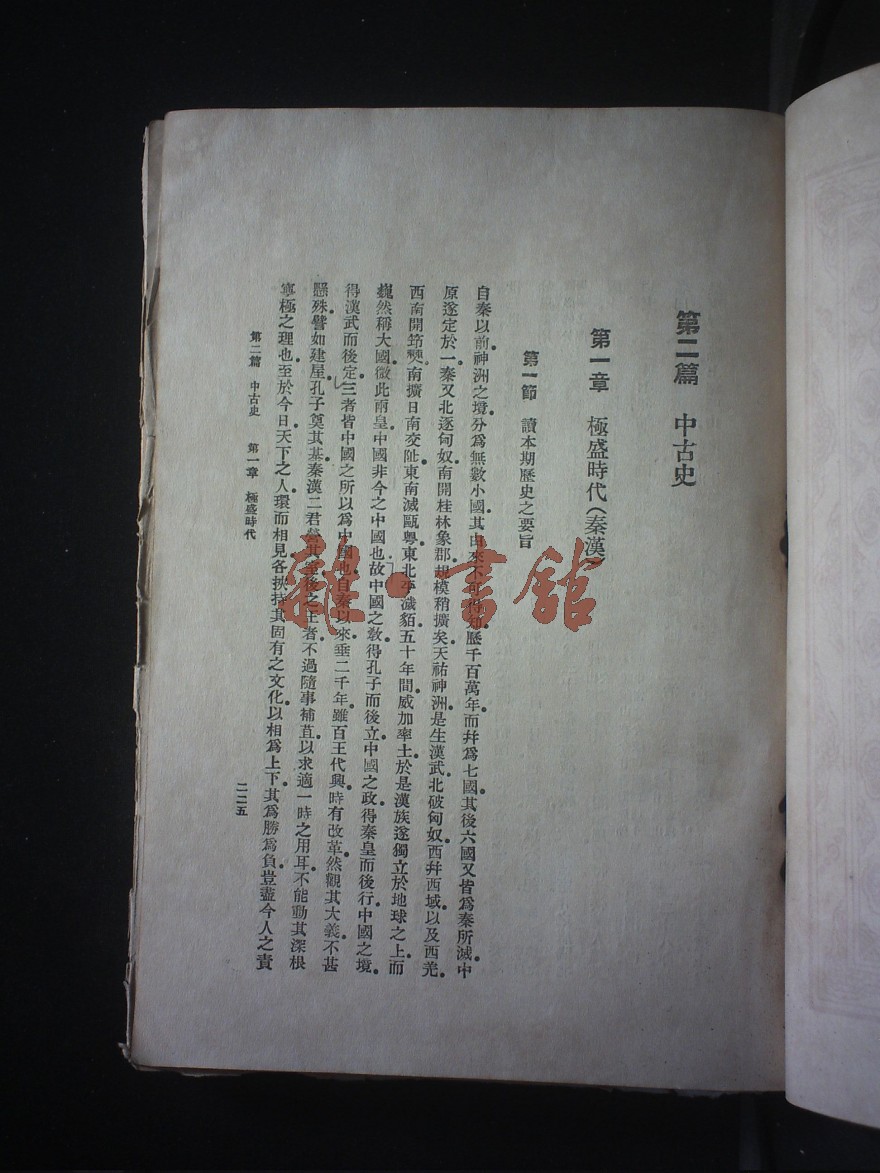 第二篇 中古史
第一章 極盛時代(秦漢)
第一節 讀本期歷史之要旨
自秦以前神洲之境分爲無數小國其由來不可得知歷千百萬年而幷爲七國其後六國又皆爲秦所滅中
原遂定於一秦又北逐匈奴南開桂林象郡規模稍擴矣天祐神洲是生漢武北破匈奴西幷西域以及西羌
西南開筇僰南擴日南交阯東南滅甌粵東北平濊貊五十年間威加率土於是漢族遂獨立於地球之上而
巍然稱大國微此兩皇中國非今之中國也故中國之敎得孔子而後立中國之政得秦皇而後行中國之境
得漢武而後定三者皆中國之所以爲中國也自秦以來垂二千年雖百王代興時有改革然觀其大義不甚
懸殊譬如建屋孔子奠其基秦漢二君營其室後之王者不過隨事補苴以求適一時之用耳不能動其深根
寧極之理也至於今日天下之人環而相見各挾持其固有之文化以相爲上下其爲勝爲負豈盡今人之責
第二篇 中古史 第一章 極盛時代
二二五
雜·書館